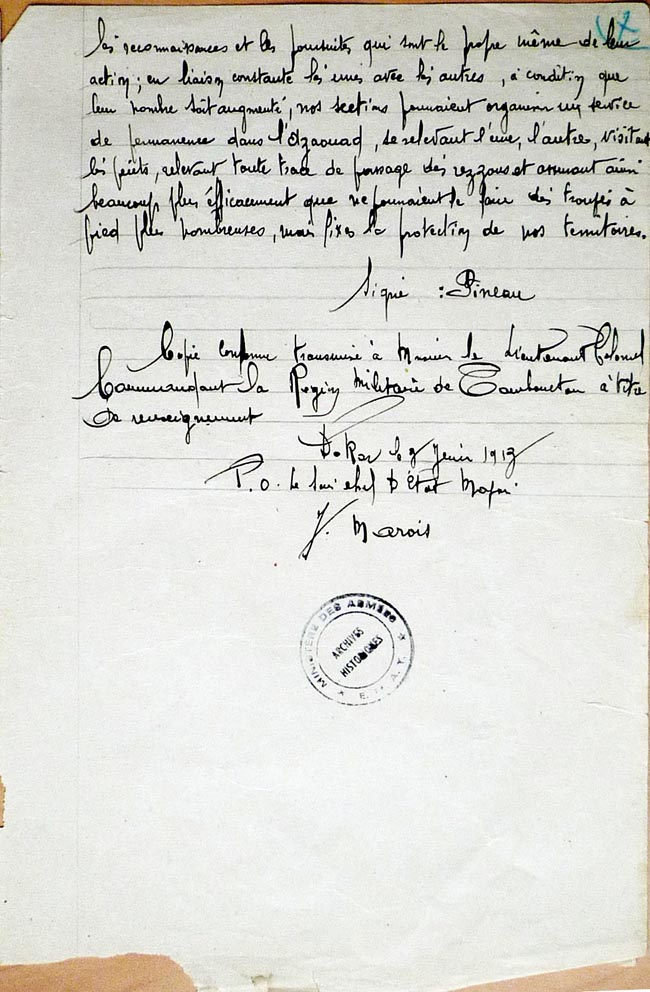 les reconnaissances et les poursuites qui sont le propre même de leur
action; en liaison constante les unes avec les autres, à condition que
leur nombre soit augmenté, nos sections pourraient organiser un service
de permanence dans l'Azaouad, se relevant l'une, l'autre, visitant
les puits, relevant toute trace de passage des rezzous et assurant ainsi
beaucoup plus efficacement que ne pourraient le faire des troupes à
pied plus nombreuses, mais fixes la protection de nos territoires.
Signé : Pineau
Copie conforme transmise à Monsieur le Lieutenant Colonel
Commandant la Région Militaire de Tombouctou à titre
de renseignement
Dakar le Juin 1913
P.O. Le Sous chef d'État Major
J. Marois
MINISTÈRE DES ARMÉES
ARCHIVES
HISTORIQUES
★ E. M. A. T. ★